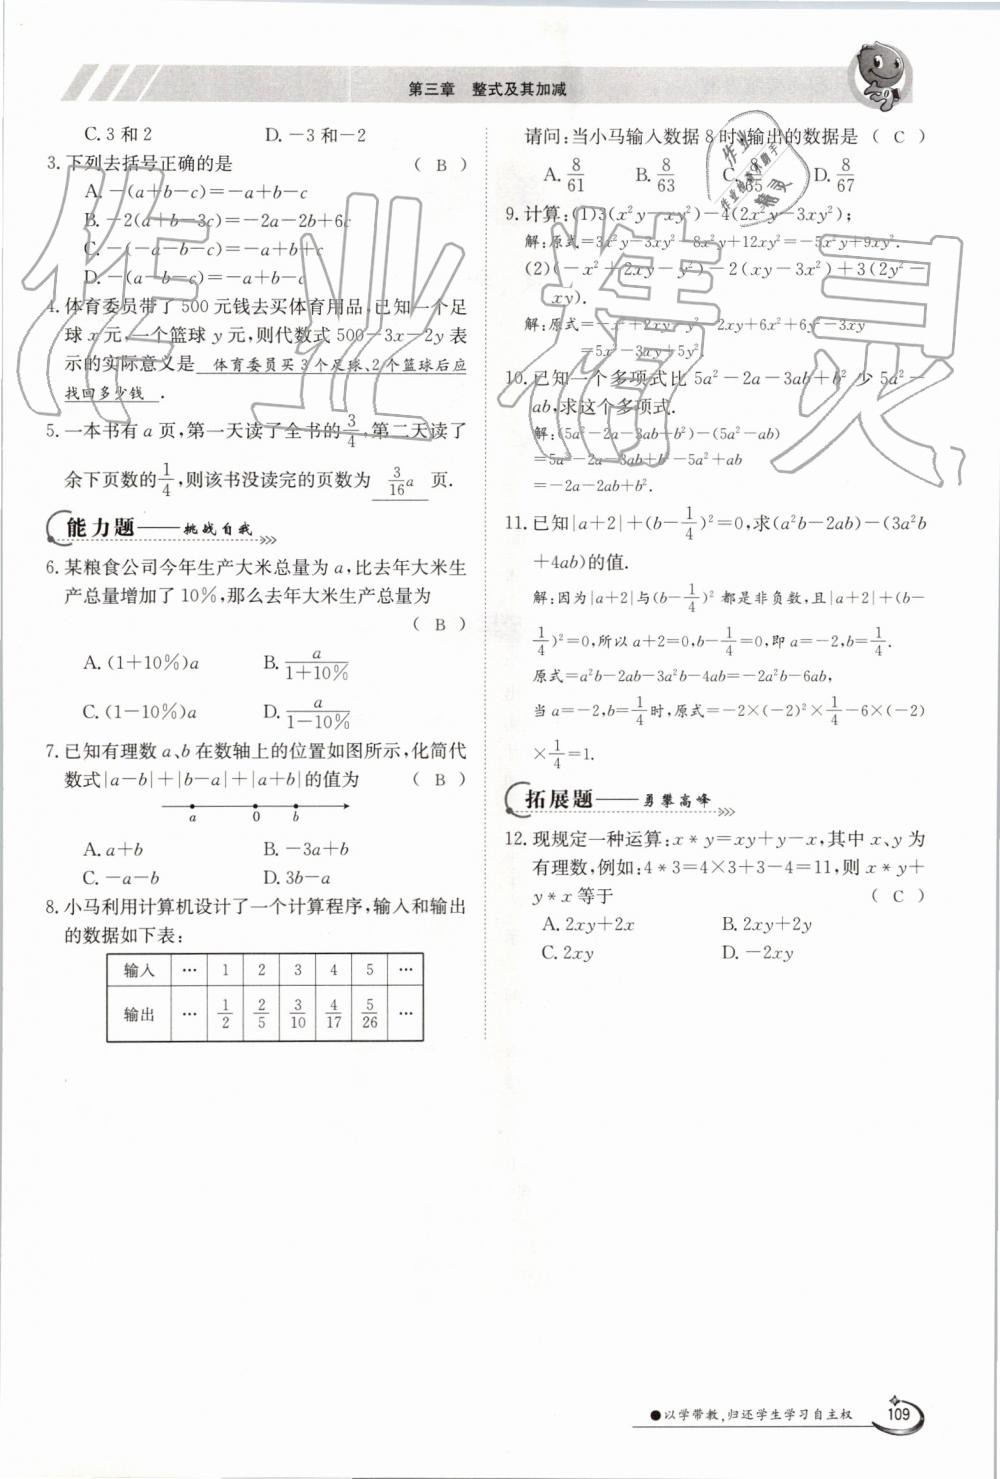 第三章 整式及其加减
C. 3 和 2 D. −3 和−2
3. 下列去括号正确的是 ( B )
A. −(a+b−c)=−a+b−c
B. −2(a+b−3c)=−2a−2b+6c
C. −(−a−b−c)=−a+b+c
D. −(a−b−c)=−a+b−c
4. 体育委员带了 500 元钱去买体育用品,已知一个足
球 x 元,一个篮球 y 元,则代数式 500−3x−2y 表
示的实际意义是 体育委员买 3 个足球、2 个篮球后应
找回多少钱 .
5. 一本书有 a 页,第一天读了全书的 3/4,第二天读了
余下页数的 1/4,则该书没读完的页数为 3/16 a 页.
能力题——挑战自我
6. 某粮食公司今年生产大米总量为 a,比去年大米生
产总量增加了 10%,那么去年大米生产总量为
( B )
A. (1+10%)a B. a/(1+10%)
C. (1−10%)a D. a/(1−10%)
7. 已知有理数 a、b 在数轴上的位置如图所示,化简代
数式|a−b|+|b−a|+|a+b|的值为 ( B )
a 0 b
A. a+b B. −3a+b
C. −a−b D. 3b−a
8. 小马利用计算机设计了一个计算程序,输入和输出
的数据如下表:
输入 … 1 2 3 4 5 …
输出 … 1/2 2/5 3/10 4/17 5/26 …
请问:当小马输入数据 8 时,输出的数据是 ( C )
A. 8/61 B. 8/63 C. 8/65 D. 8/67
9. 计算:(1)3(x²y−xy²)−4(2x²y−3xy²);
解:原式=3x²y−3xy²−8x²y+12xy²=−5x²y+9xy².
(2)(−x²+2xy−y²)−2(xy−3x²)+3(2y²−
xy).
解:原式=−x²+2xy−y²−2xy+6x²+6y²−3xy
=5x²−3xy+5y².
10. 已知一个多项式比 5a²−2a−3ab+b² 少 5a²−
ab,求这个多项式.
解:(5a²−2a−3ab+b²)−(5a²−ab)
=5a²−2a−3ab+b²−5a²+ab
=−2a−2ab+b².
11. 已知|a+2|+(b−1/4)²=0,求(a²b−2ab)−(3a²b
+4ab)的值.
解:因为|a+2|与(b−1/4)² 都是非负数,且|a+2|+(b−
1/4)²=0,所以 a+2=0,b−1/4=0,即 a=−2,b=1/4.
原式=a²b−2ab−3a²b−4ab=−2a²b−6ab,
当 a=−2,b=1/4时,原式=−2×(−2)²×1/4−6×(−2)
×1/4=1.
拓展题——勇攀高峰
12. 现规定一种运算:x*y=xy+y−x,其中 x、y 为
有理数,例如:4*3=4×3+3−4=11,则 x*y+
y*x 等于 ( C )
A. 2xy+2x B. 2xy+2y
C. 2xy D. −2xy
●以学带教,归还学生学习自主权
109
作业精灵